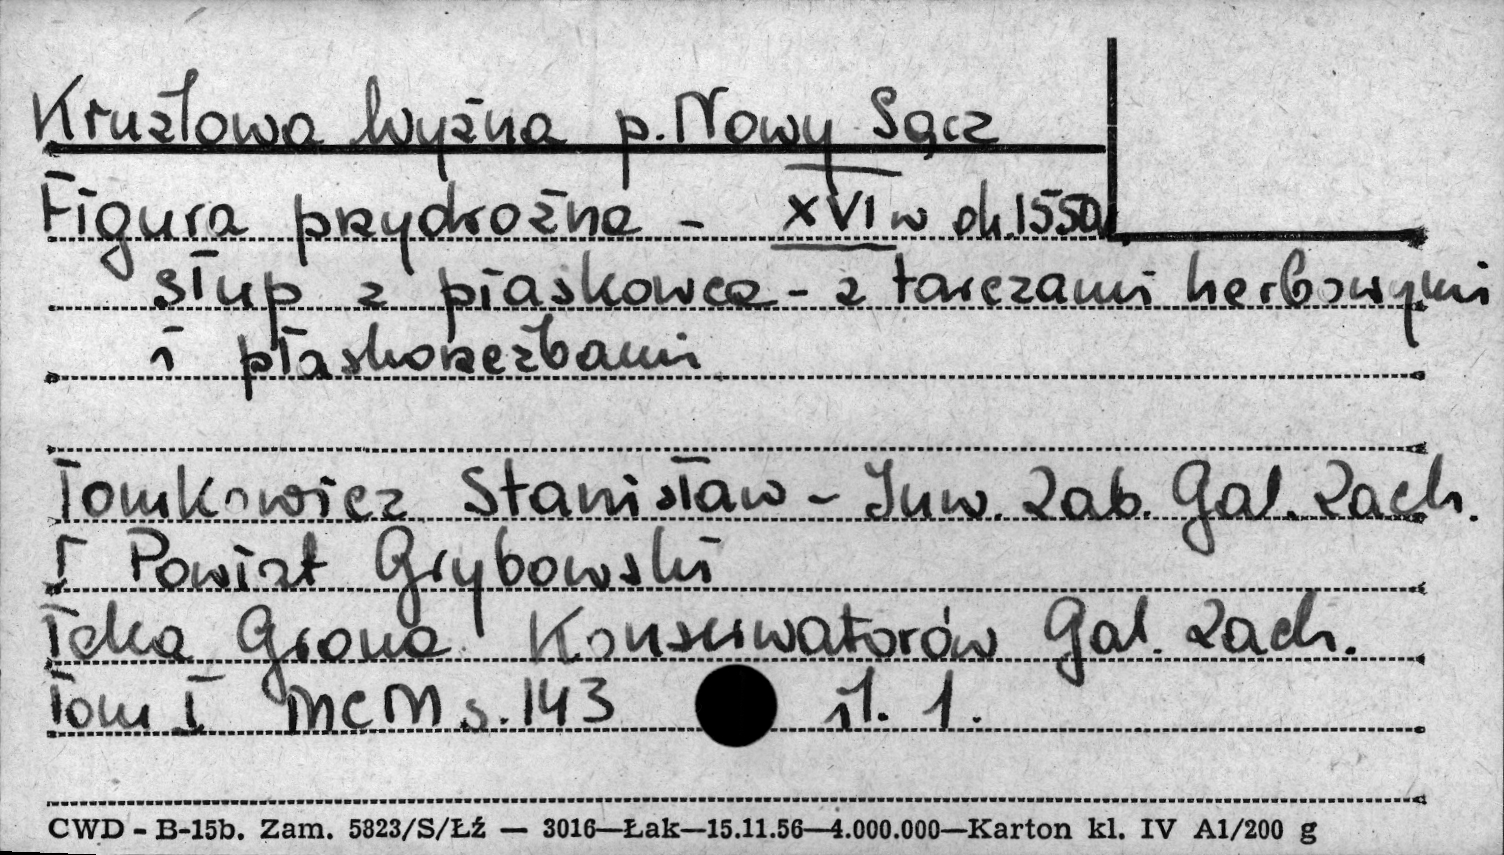 Krużlowa Wyżna p. Nowy Sącz
Figura przydrożna - XVI w ok. 1550
słup z piaskowca - z tarczami herbowymi
i płaskorzeźbami
Tomkowicz Stanisław - Inw. Zab. Gal. Zach.
I Powiat Grybowski
Teka Grona Konserwatorów Gal. Zach.
Tom I MCM s. 143 il. 1.
CWD - B-15b. Zam. 5823/S/Łź — 3016—Łak—15.11.56—4.000.000—Karton kl. IV A1/200 g